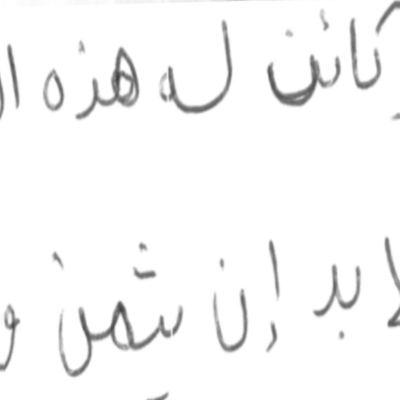 كائن له هذه
لا بد إن ثمن و